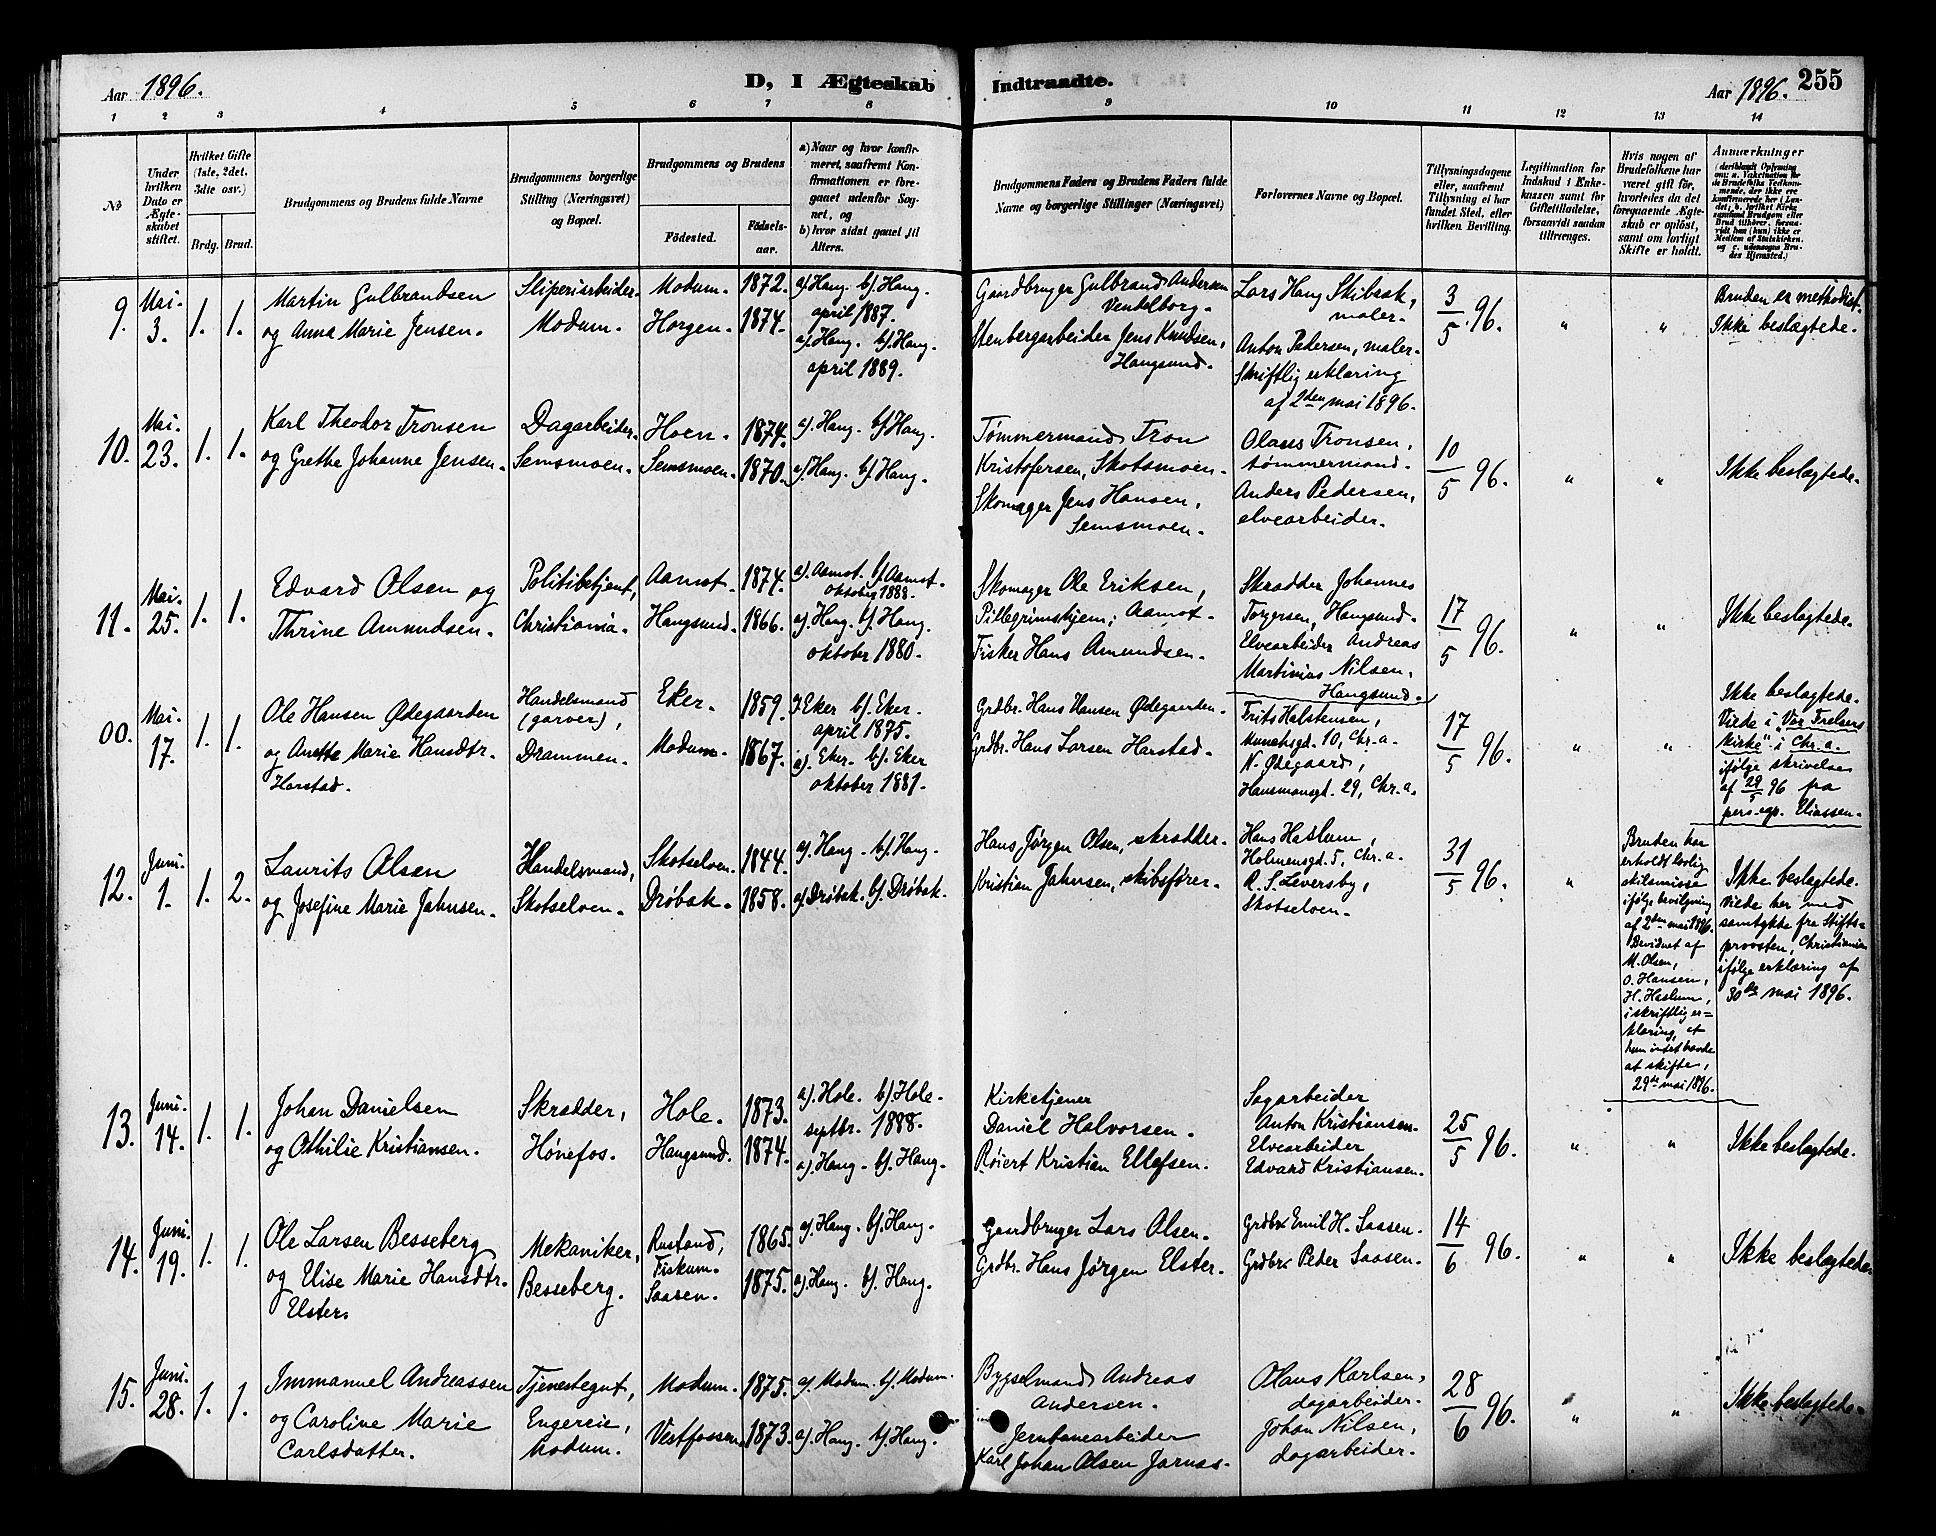 Aar 1896.
D, I Ægteskab
Indtraadte.
Aar 1896.
255
1 2 3 4 5 6 7 8 9 10 11 12 13 14
№
Under
hvilken
Dato er
Ægte-
skabet
stiftet.
Hvilket Gifte
(1ste, 2det,
3die osv.)
Brdg. Brud.
Brudgommens og Brudens fulde Navne
Brudgommens borgerlige
Stilling (Næringsvei)
og Bopæl.
Brudgommens og Brudens
Födested.
Födsels-
aar.
a) Naar og hvor konfir-
meret, saafremt Kon-
firmationen er fore-
gaaet udenfor Sog-
net, og
b) hvor sidst gaaet til
Alters.
Brudgommens Faders og Brudens Faders fulde
Navne og borgerlige Stillinger (Næringsvei)
Forlovernes Navne og Bopæl.
Tillysningsdagene
eller, saafremt
Tillysning ei har
fundet Sted, efter
hvilken Bevilling.
Legitimation for
Indskud i Enke-
kassen samt for
Giftetilladelse,
forsaavidt saadan
tiltrænges.
Hvis nogen af
Brudefolkene har
været gift för,
hvorledes da det
foregaaende Ægte-
skab er oplöst,
samt om lovligt
Skifte er holdt.
Anmærkninger
9.
Mai.
3.
1. 1.
Martin Gulbrandsen
og Anna Marie Jensen.
Sliperiarbeider.
Modum.
Modum.
Horgen.
1872.
1874.
a). Haug. b). Haug.
april 1887.
a). Haug. b). Haug.
april 1889.
Gaardbruger Gulbrand Andersen
Vendelborg.
Stenbergarbeider Jens Knudsen,
Haugsund.
Lars Haug Skibrak,
maler.
Anton Pedersen, maler.
Skriftlig erklæring
af 2den mai 1896.
3/5. 96.
"
"
Bruden er methodist.
Ikke beslægtede.
10.
Mai.
23.
1. 1.
Karl Theodor Tronsen
og Grethe Johanne Jensen.
Dagarbeider.
Semsmoen.
Hoen.
Semsmoen.
1874.
1870.
a). Haug. b). Haug.
a). Haug. b). Haug.
Tømmermand Tron
Kristofersen, Skotsmoen.
Skomager Jens Hansen,
Semsmoen.
Olaus Tronsen,
tømmermand.
Anders Pedersen,
elvearbeider.
10/5 96.
"
"
Ikke beslægtede.
11.
Mai.
25.
1. 1.
Edvard Olsen og
Thrine Amundsen.
Politibetjent,
Christiania.
Aamot.
Haugsund.
1874.
1866.
a). Aamot. b). Aamot.
oktober 1888.
a). Haug. b). Haug.
oktober 1880.
Skomager Ole Eriksen,
Pillegrimshjem; Aamot.
Fisker Hans Amundsen.
Skrædder Johannes
Torgersen, Haugsund.
Elvearbeider Andreas
Martinius Nilsen,
Haugsund.
17/5 96.
"
"
Ikke beslægtede.
00.
Mai.
17.
1. 1.
Ole Hansen Ødegaarden
og Anette Marie Hansdtr.
Harstad.
Handelsmand
(garver),
Drammen.
Eker.
Modum.
1859.
1867.
Eker b). Eker.
april 1875.
a). Eker. b). Eker
oktober 1881.
Grdbr. Hans Hansen Ødegaarden.
Grdbr. Hans Larsen Harstad.
Frits Halstensen,
Munchsgd. 10, Chr.a.
N. Ødegaard,
Hausmansgd. 29, Chr.a.
17/5 96.
"
"
Ikke beslægtede.
Viede i "Vor Frelsers
kirke" i Chr.a.
ifølge skrivelse
af 29/5 96 fra
pers. cap. Eliassen.
12.
Juni.
1.
1. 2.
Laurits Olsen
og Josefine Marie Jahnsen.
Handelsmand,
Skotselven.
Skotselven.
Drøbak.
1844.
1858.
a). Haug. b). Haug.
a). Drøbak. b). Drøbak.
Hans Jørgen Olsen, skrædder.
Kristian Jahnsen, skibsfører.
Hans Haslum,
Holmensgd. 5, Chr.a.
R. S. Leversby,
Skotselven.
31/5 96.
"
Bruden har
erholdt lovlig
skilsmisse
ifølge bevilgning
af 2den mai 1896.
Bevidnet af
M. Olsen,
O. Hansen,
H. Haslum,
i skriftlig er=
klæring, at
hun intet havde
at skifte,
29de mai 1896.
Ikke beslægtede.
Viede her med
samtykke fra Stifts=
provsten, Christiania
ifølge erklæring af
30de mai 1896.
13.
Juni.
14.
1. 1.
Johan Danielsen
og Othilie Kristiansen.
Skrædder,
Hønefos.
Hole.
Haugsund.
1873.
1874.
a). Hole. b). Hole.
septbr. 1888.
a). Haug. b). Haug.
Kirketjener
Daniel Halvorsen.
Røiert Kristian Ellefsen.
Sagarbeider
Anton Kristiansen.
Elvearbeider
Edvard Kristiansen.
25/5 96.
"
"
Ikke beslægtede.
14.
Juni.
19.
1. 1.
Ole Larsen Besseberg
og Elise Marie Hansdtr.
Elster.
Mekaniker,
Besseberg.
Rustand,
Fiskum.
Saasen.
1865.
1875.
a). Haug. b). Haug.
a). Haug. b). Haug.
Gaardbruger Lars Olsen.
Grdbr. Hans Jørgen Elster.
Grdbr. Emil H. Saasen.
Grdbr. Peder Saasen.
14/6 96.
"
"
Ikke beslægtede.
15.
Juni.
28.
1. 1.
Immanuel Andreassen
og Caroline Marie
Carlsdatter.
Tjenestegut,
Engereie,
Modum.
Modum.
Vestfossen.
1875.
1873.
a). Modum. b). Modum.
a). Haug. b). Haug.
Bygselmand Andreas
Andersen.
Jernbanearbeider
Karl Johan Olsen Jarnas.
Olaus Karlsen,
dagarbeider.
Johan Nilsen,
dagarbeider.
28/6 96.
"
"
Ikke beslægtede.